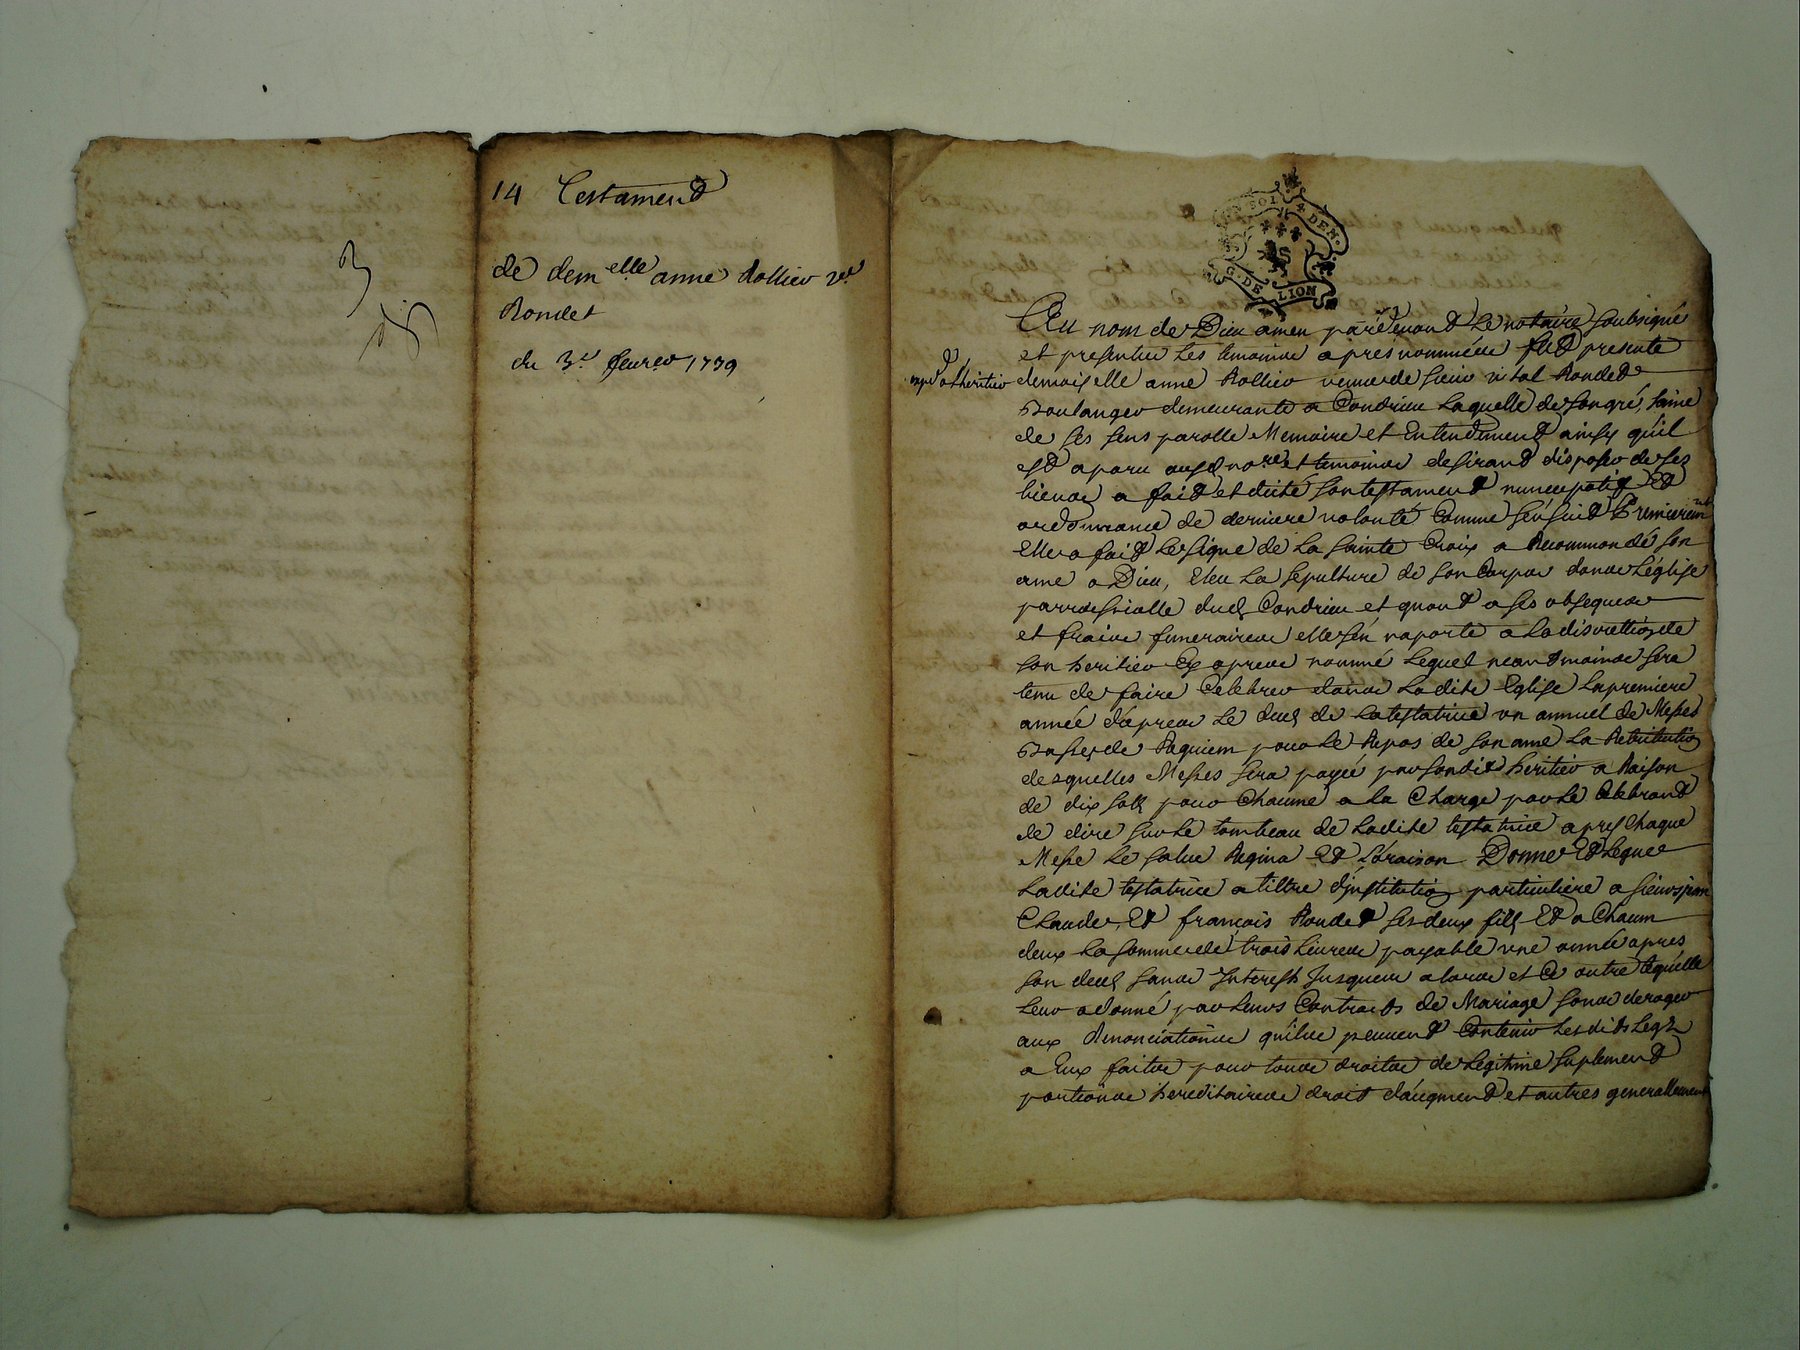 3
14 Testament
de dem elle anne Rollier vve
Rondet
du 3e fevrer 1739
SOL 4 DEN.
G. DE LION
Au nom de Dieu amen pardevand le notaire soubsigné
et presentes les temoins apres nommées fut presente
expd a l'heritier
demoiselle anne Rollier veuve de sieur vital Rondet
Boulanger demeurante a Condrieu laquelle de son gré, saine
de ses sens parolle Memoire et Entendement ainsy quil
est aparu auxd nore et temoins desirand disposer de ses
biens a fait et dicté son testament nuncupatif Et
ordonnance de derniere volonté Comme sensuit Premierement
Elle a fait le signe de la sainte Croix a Recommandé son
ame a Dieu, Eleu la sepulture de son Corps dans l'église
parroissialle dud Condrieu et quand a ses obseques
et fraix funeraires elle sen raporte a la discrettion de
son heritier Cy apres nommé lequel neandmoins sera
tenu de faire Celebrer dans ladite Eglise la premiere
année d'apres le deces de la testatrice un annuel de Messes
Basses de Requiem pour le Repos de son ame la Retribution
desquelles Messes sera payée par sondit heritier a Raison
de dix sols pour Chacune a la Charge par le Celebrand
de dire sur le tombeau de ladite testatrice apres Chaque
Messe le salve Regina Et l'oraison Donne Et legue
ladite testatrice a tiltre d'institution particuliere a sieurs jean
Claude, Et françois Rondet ses deux fils Et a Chacun
deux la somme de trois livres payable une année apres
son deces sans Interests Jusques alors et Ce outre Cequ'elle
leur a donné par leurs Contracts de Mariage sans deroger
aux Renonciations qu'ils peuvent Contenir lesdits legs
a Eux faits pour tous droits de legitime suplement
portions hereditaires droit d'augment et autres generallement